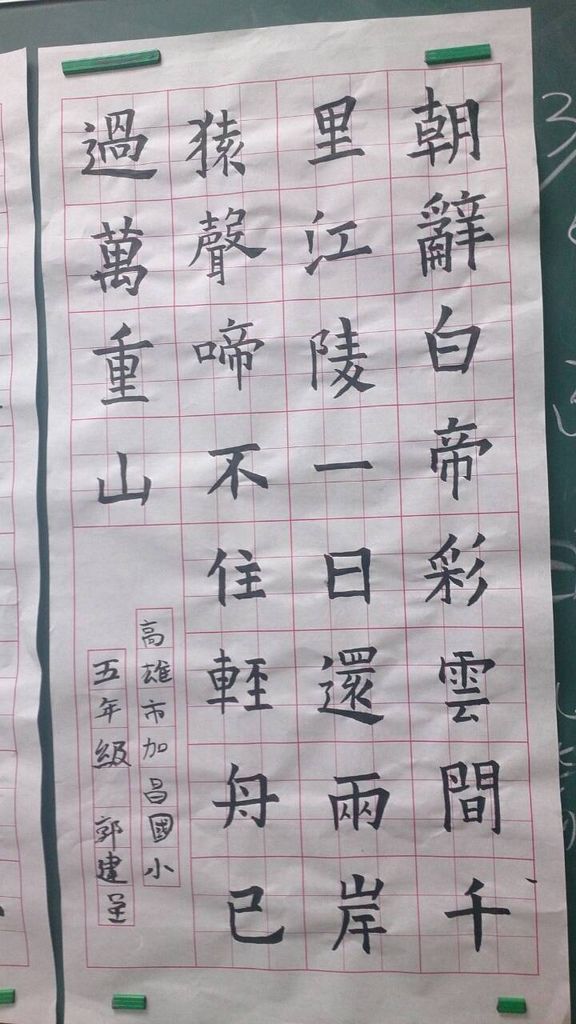 朝辭白帝彩雲間千
里江陵一日還兩岸
猿聲啼不住輕舟已
過萬重山
高雄市加昌國小
五年級 郭建呈